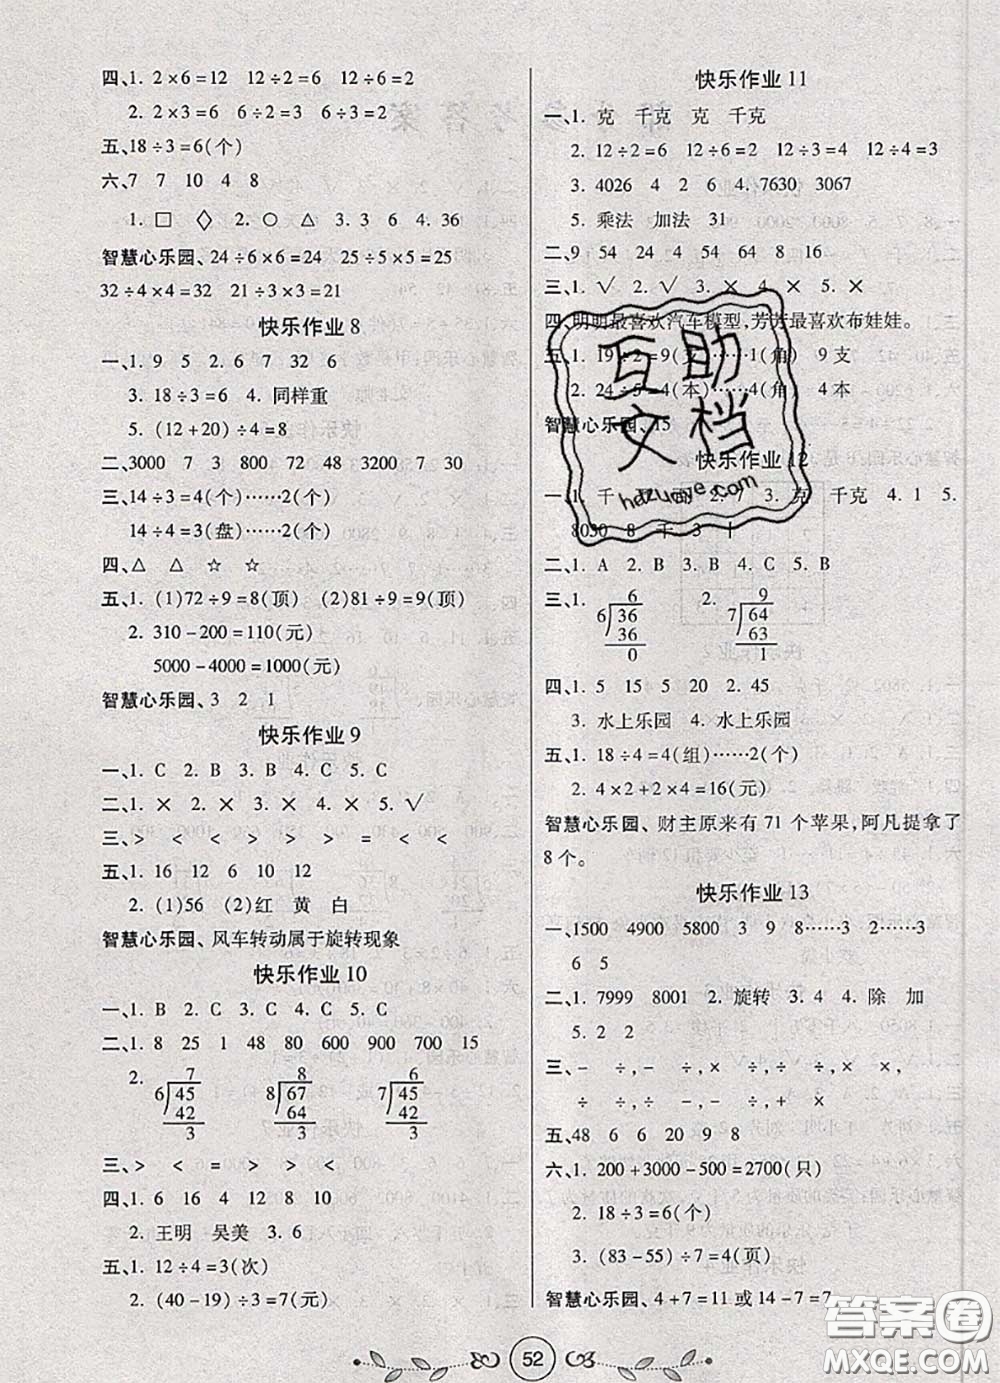 四、1. 2×6=12 12÷2=6 12÷6=2
2. 2×3=6 6÷2=3 6÷3=2
五、18÷3=6(个)
六、7 7 10 4 8
1. □ ◇ 2. ○ △ 3. 3 6 4. 36
智慧心乐园、24÷6×6=24 25÷5×5=25
32÷4×4=32 21÷3×3=21
快乐作业 8
一、1. 9 5 2. 6 7 32 6
3. 18÷3=6 4. 同样重
5. (12+20)÷4=8
二、3000 7 3 800 72 48 3200 7 30
三、14÷3=4(个)……2(个)
14÷4=3(盘)……2(个)
四、△ △ ☆ ☆
五、1. (1)72÷9=8(顶) (2)81÷9=9(顶)
2. 310-200=110(元)
5000-4000=1000(元)
智慧心乐园、3 2 1
快乐作业 9
一、1. C 2. B 3. B 4. C 5. C
二、1. × 2. × 3. × 4. × 5. √
三、> < < > > > = < <
五、1. 16 12 6 10 12
2. (1)56 (2)红 黄 白
智慧心乐园、风车转动属于旋转现象
快乐作业 10
一、1. B 2. C 3. C 4. C 5. C
二、1. 8 25 1 48 80 600 900 700 15
2. 7 8 7
6 45 8 67 6 45
42 64 42
3 3 3
三、> < = > < = > > <
四、1. 6 16 4 12 8 10
2. 王明 吴美 3. 6
五、1. 12÷4=3(次)
2. (40-19)÷3=7(元)
快乐作业 11
一、1. 克 千克 克 千克
2. 12÷2=6 12÷3=4 12÷4=3
3. 4026 4 2 6 4. 7630 3067
5. 乘法 加法 31
二、9 54 24 4 54 64 8 16
三、1. √ 2. √ 3. × 4. × 5. ×
四、明明最喜欢汽车模型,芳芳最喜欢布娃娃。
五、1. 19÷2=9(支)……1(角) 9支
2. 24÷5=4(本)……4(角) 4本
智慧心乐园、15
快乐作业 12
一、1. 千 2. 7 3. 克 千克 4. 1 5.
8030 8 千 3 1
二、1. A 2. B 3. B 4. C 5. B
三、1. 6 2. 9
6 36 7 64
36 63
0 1
四、1. 5 15 5 20 2. 45
3. 水上乐园 4. 水上乐园
五、1. 18÷4=4(组)……2(个)
2. 4×2+2×4=16(元)
智慧心乐园、财主原来有71个苹果,阿凡提拿了
8个。
快乐作业 13
一、1500 4900 5800 3 9 8……3 2……3
6 5
二、1. 7999 8001 2. 旋转 3. 4 4. 除 加
5. 2 2
三、- - ÷,÷ -,÷ ×,÷ ×,÷
÷ × -,÷ ÷,÷ ÷,+
五、48 6 6 20 9 8
六、1. 200+3000-500=2700(只)
2. 18÷3=6(个)
3. (83-55)÷7=4(页)
智慧心乐园、4+7=11或14-7=7
52
互助
文档
hdzuoye.com
答案圈
MXQE.COM